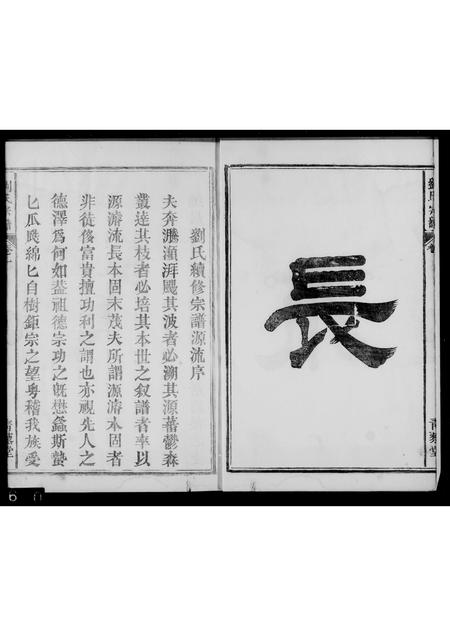 長
劉氏宗譜
青藜堂
劉氏續修宗譜源流序
夫奔騰湏湃颺其波者必溯其源蕃鬱森
叢達其枝者必培其本世之叙譜者率以
源濬流長本固末茂夫所謂源濬本固者
非徒侈富貴擅功利之謂也亦視先人之
德澤為何如葢祖德宗功之既懋螽斯蟄
匕瓜瓞綿匕自樹鉅宗之望粤稽我族受
青藜堂